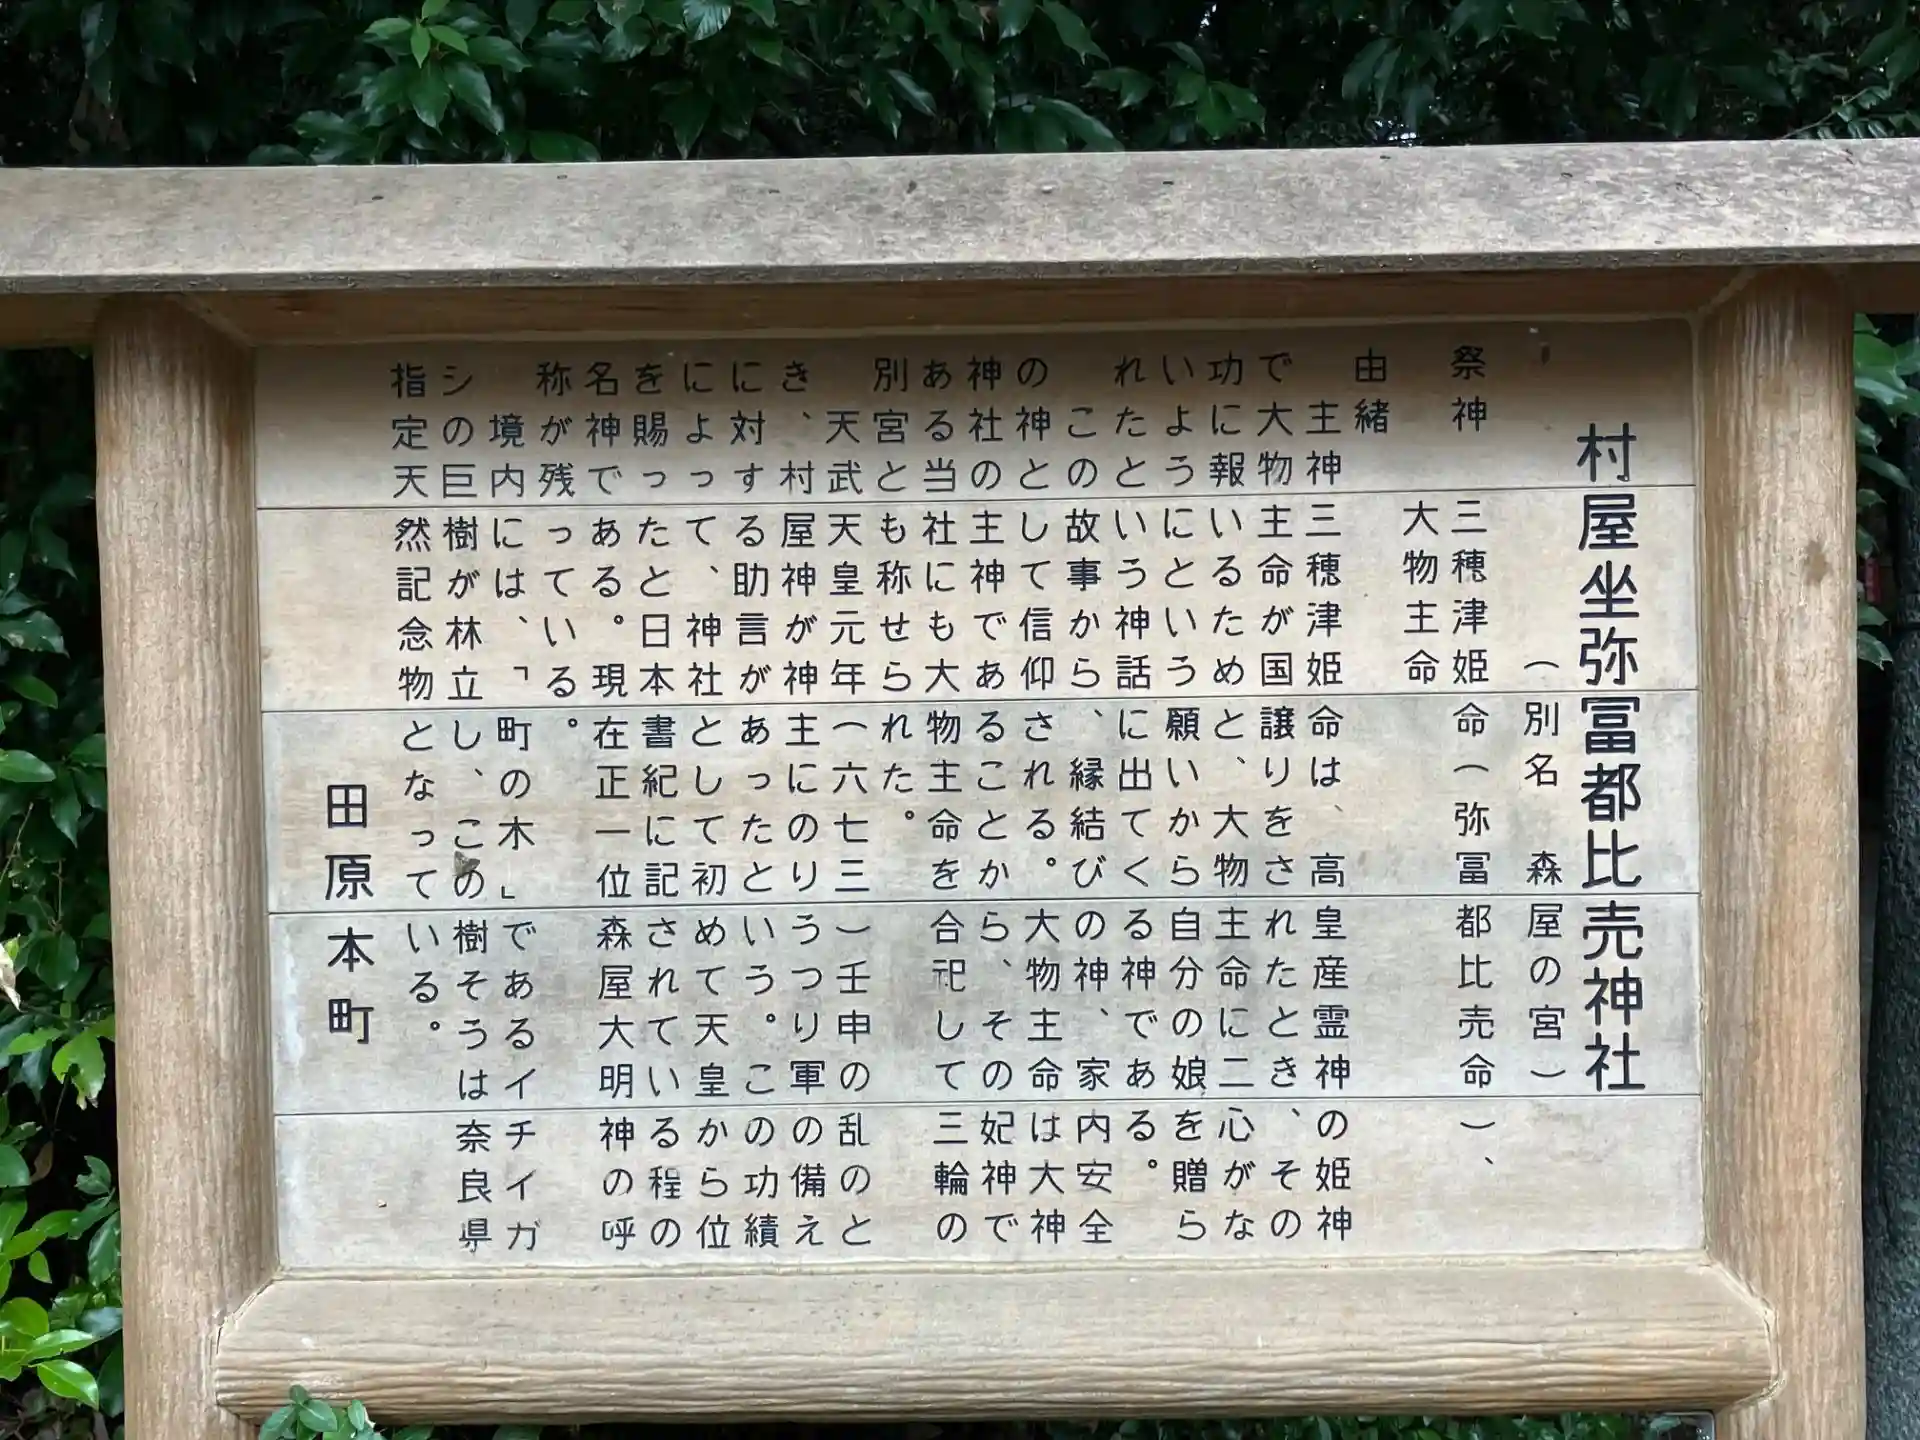 村屋坐弥冨都比売神社
（別名 森屋の宮）
祭神 三穂津姫命（弥冨都比売命）、
大物主命
由緒
主神三穂津姫命は、高皇産霊神の姫神
で大物主命が国譲りをされたとき、その
功に報いるためと、大物主命に二心がな
いようにという願いから自分の娘を贈ら
れたという神話に出てくる神である。
この故事から、縁結びの神、家内安全
の神として信仰される。大物主命は大神
神社の主神であることから、その妃神で
ある当社にも大物主命を合祀して三輪の
別宮とも称せられた。
天武天皇元年（六七三）壬申の乱のと
き、村屋神が神主にのりうつり軍の備え
に対する助言があったという。この功績
によって、神社として初めて天皇から位
を賜ったと日本書紀に記されている程の
名神である。現在正一位森屋大明神の呼
称が残っている。
境内には、「町の木」であるイチイガ
シの巨樹が林立し、この樹そうは奈良県
指定天然記念物となっている。
田原本町